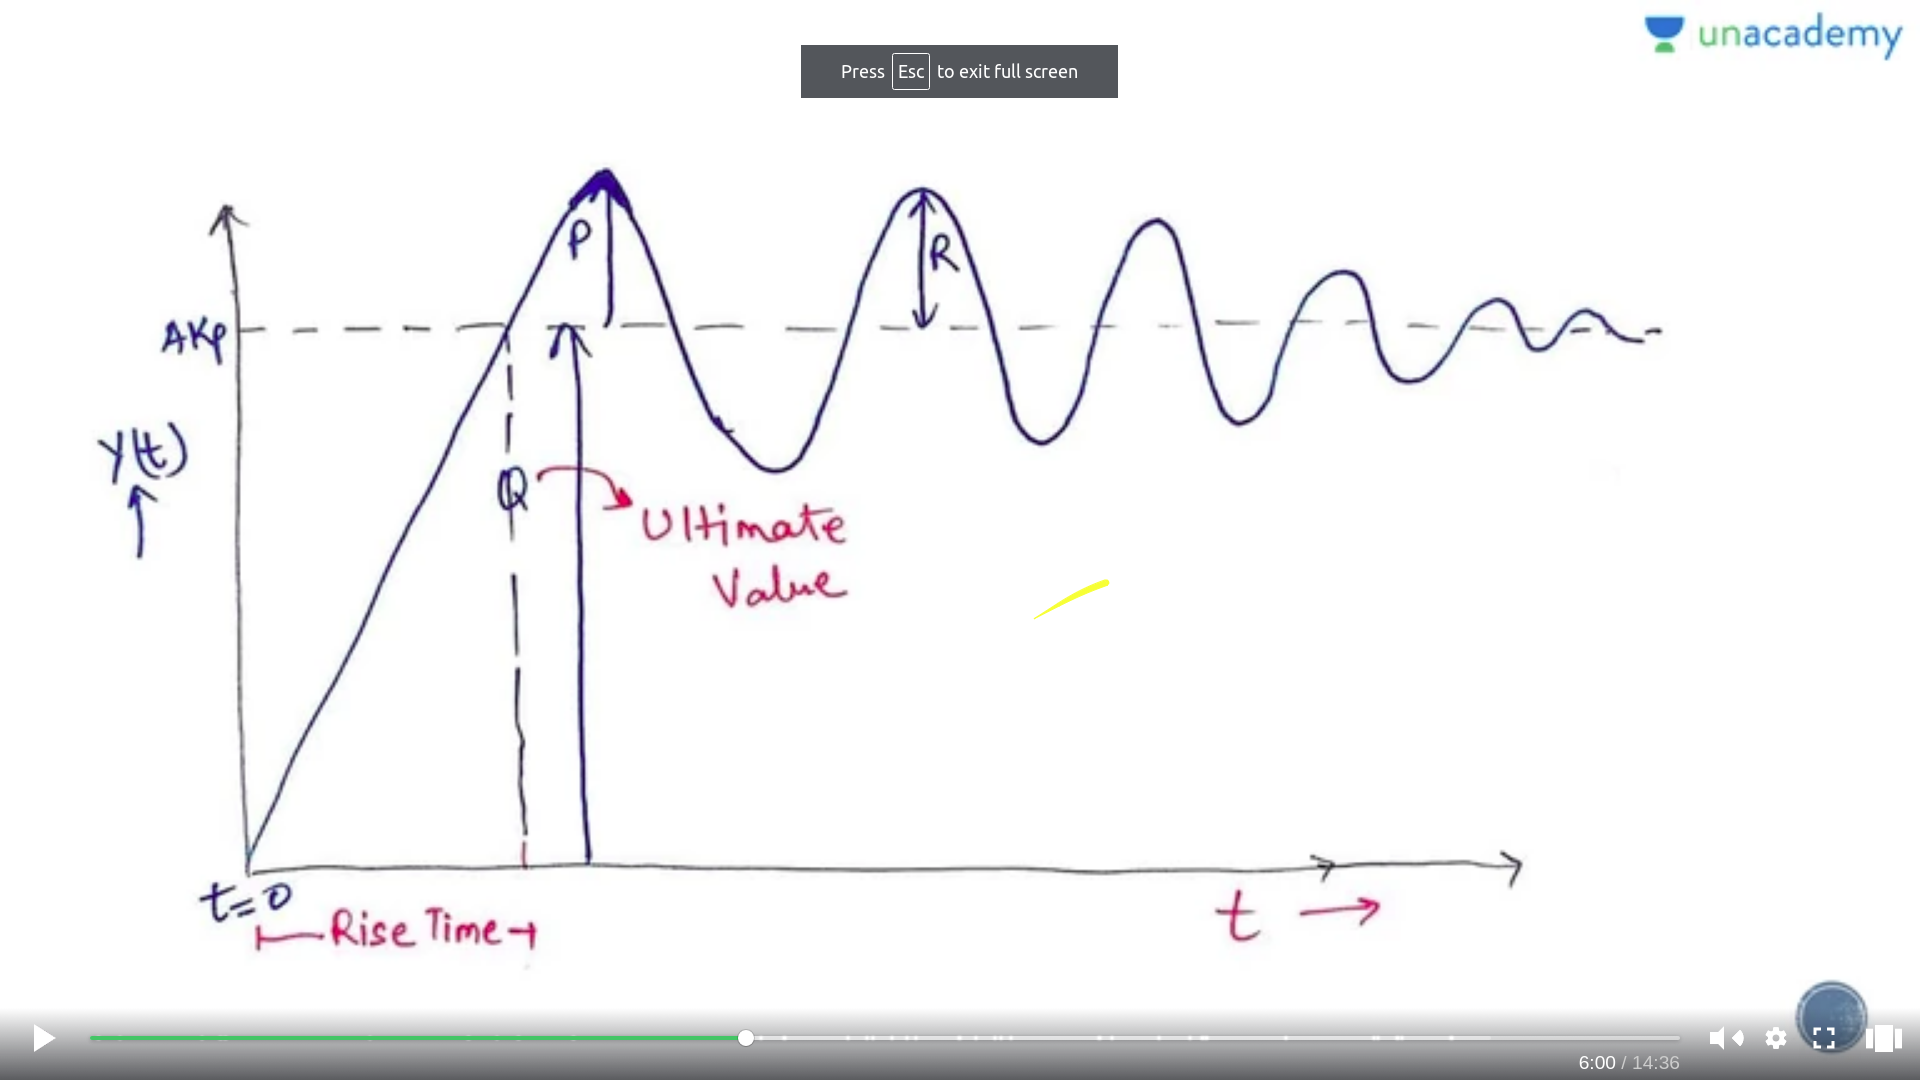 unacademy
Press Esc to exit full screen
P
R
AKp
Y(t)
Q
Ultimate
Value
t=0
Rise Time
t
6:00 / 14:36